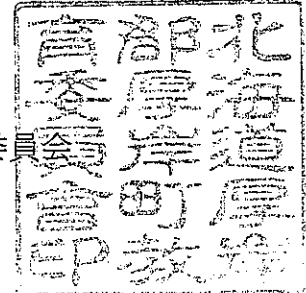 員会
北海道厚岸
郡厚岸町教
育委員会印